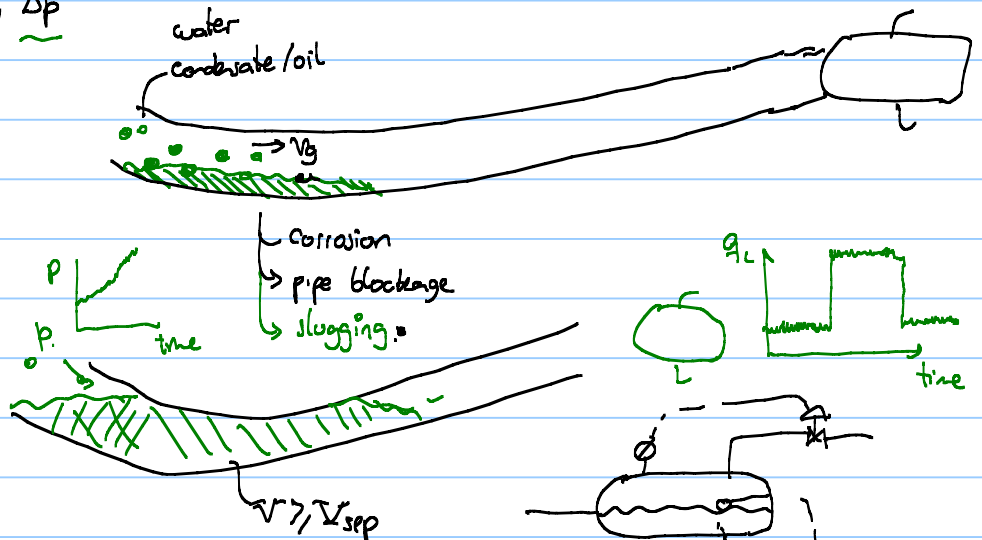 Δp
water
condensate/oil
Vg
corrosion
pipe blockage
slugging.
p
time
p.
V ≥ Vsep
qL
time